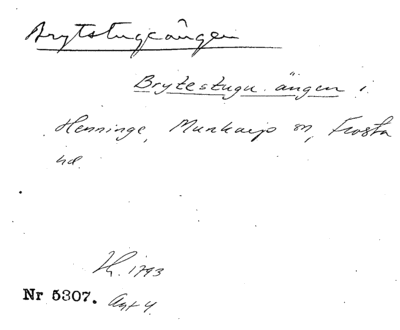 Brytstugeängen
Brytestugu ängen i
Henninge, Munkarp sn, Frosta
hd.
Lh. 1793
Nr 5307. Akt 4.